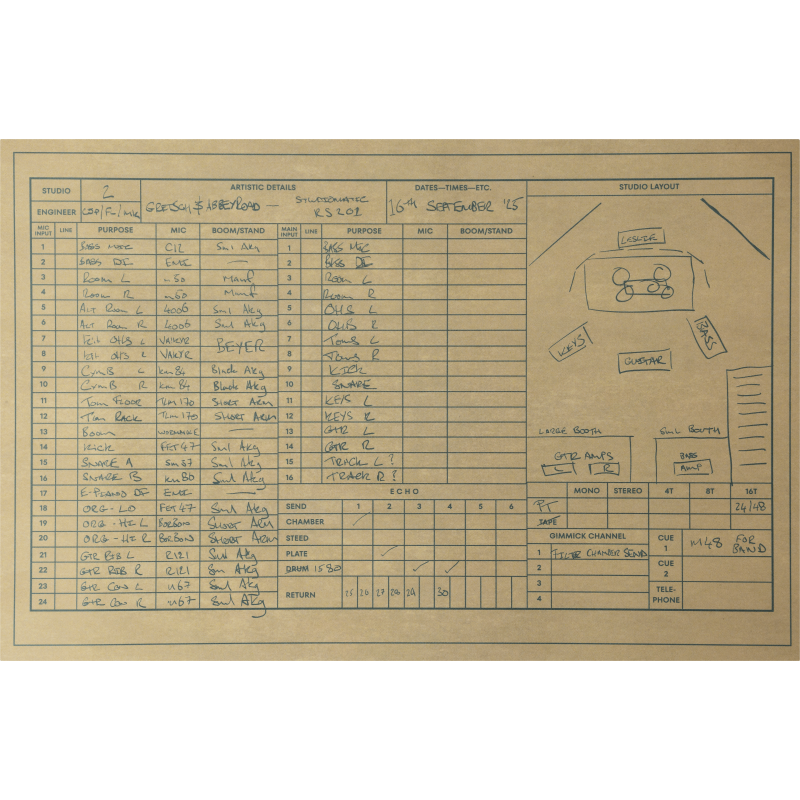 STUDIO 2 ARTISTIC DETAILS DATES—TIMES—ETC. STUDIO LAYOUT
ENGINEER GRETSCH & ABBEY ROAD — RS 202 16TH SEPTEMBER '25
MIC INPUT LINE PURPOSE MIC BOOM/STAND MAIN INPUT LINE PURPOSE MIC BOOM/STAND
1 BASS MIC C12 Sml Akg 1 BASS MIC
2 BASS DI EMI — 2 BASS DI
3 Room L m50 Manf 3 Room L
4 Room R m50 Manf 4 Room R
5 Alt Room L 4006 Sml Akg 5 OHS L
6 Alt Room R 4006 Sml Akg 6 OHS R
7 OHS L VALKYR BEYER 7 Toms L
8 OHS R VALKYR 8 Toms R
9 CymB L km84 Black Akg 9 KICK
10 CymB R km84 Black Akg 10 SNARE
11 Tom FLOOR TLM170 SHORT ARM 11 KEYS L
12 Tom RACK TLM170 SHORT ARM 12 KEYS R
13 Boom — 13 GTR L
14 KICK FET47 Sml Akg 14 GTR R
15 SNARE A Sm57 Sml Akg 15 TRACK L ?
16 SNARE B km86 Sml Akg 16 TRACK R ?
17 E-PIANO DI EMI —
18 ORG - LO FET47 Sml Akg
19 ORG - HI L SHORT ARM
20 ORG - HI R SHORT ARM
21 GTR RIB L R121 Sml Akg
22 GTR RIB R R121 Sml Akg
23 GTR CON L u67 Sml Akg
24 GTR CON R u67 Sml Akg
ECHO
SEND 1 2 3 4 5 6
CHAMBER
STEED
PLATE
DRUM 1580
RETURN 25 26 27 28 29 30
LESLIE
KEYS
BASS
GUITAR
LARGE BOOTH
SML BOOTH
GTR AMPS
L R
BASS
AMP
MONO STEREO 4T 8T 16T
PT 24/48
TAPE
GIMMICK CHANNEL
1 FILTER CHAMBER SEND
2
3
4
CUE 1 M48 FOR BAND
CUE 2
TELE-PHONE